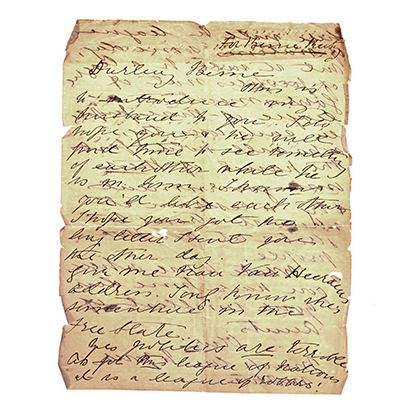 For Birnie Ruby
Darling Birnie
This is
to introduce my
husband to you. I do
hope you & he will
find time to see something
of each other while he
is in
you'd like each other
I hope you got the
long letter I sent you
the other day.
give me Nan Van Heerdens
address. I only know she's
somewhere in the
Free State.
Yes politics are terrible
as for the League of Nations
it is a league of robbers!